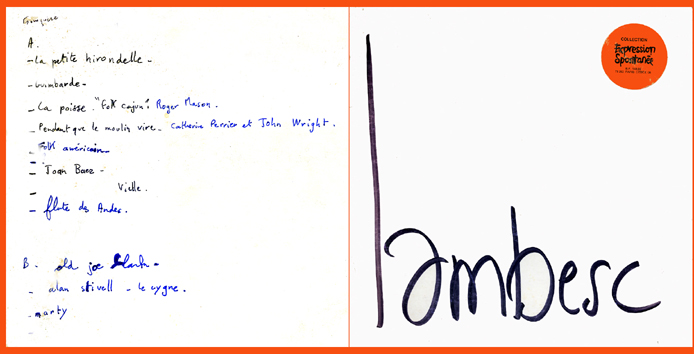 A.
- La petite hirondelle -
- Guimbarde -
- La poisse. "Folk cajun". Roger Mason.
- Pendant que le moulin vire - Catherine Perrier et John Wright.
- Folk américain
- Joan Baez -
- Vielle.
- flute des Andes.
B. - old joe Clark -
- alan stivell - le cygne.
- marty
COLLECTION
Expression
Spontanée
lambesc